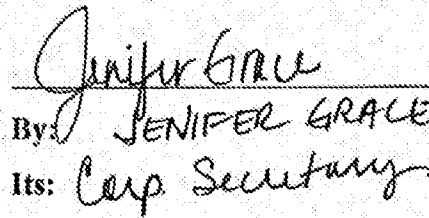 Jenifer Grace
By: JENIFER GRACE
Its: Corp Secretary